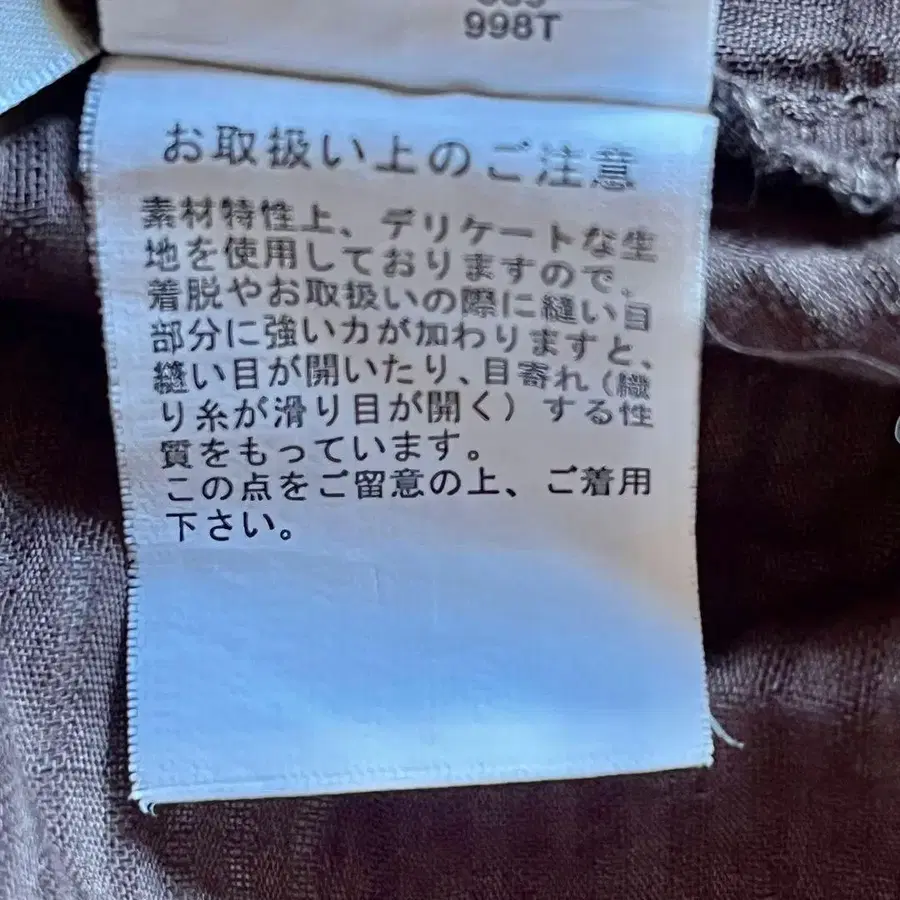 998T
お取扱い上のご注意
素材特性上、デリケートな生
地を使用しておりますので、
着脱やお取扱いの際に縫い目
部分に強い力が加わりますと、
縫い目が開いたり、目寄れ(織
り糸が滑り目が開く)する性
質をもっています。
この点をご留意の上、ご着用
下さい。